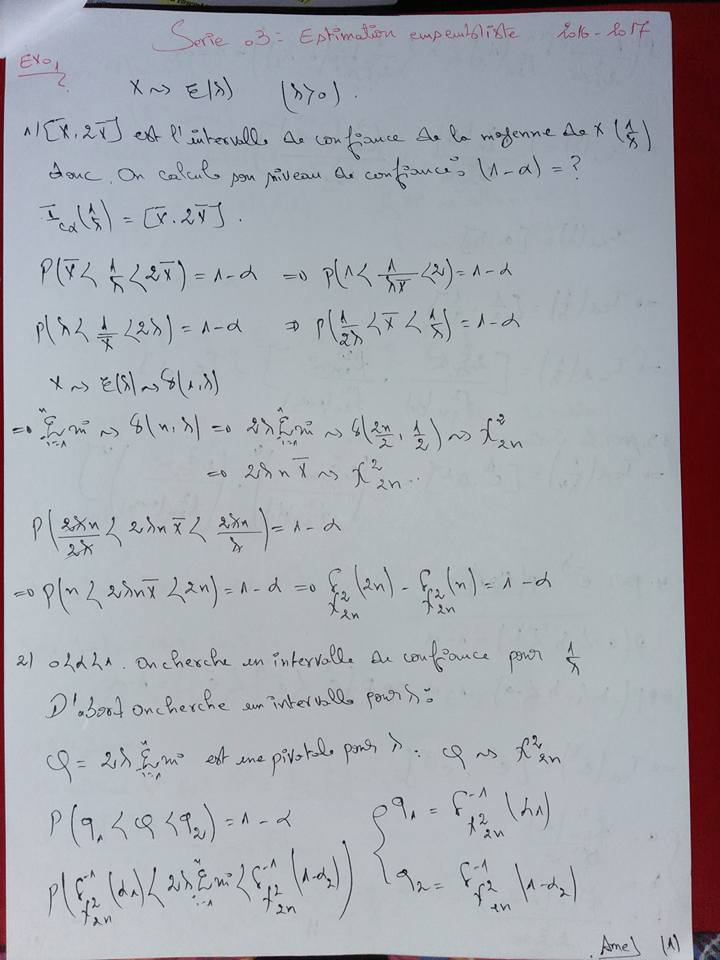 Serie 03 : Estimation ensembliste 2016-2017
Exo1
X ~> E(λ) (λ>0).
1/ [X̄, 2X̄] est l'intervalle de confiance de la moyenne de X (1/λ)
donc. On calcule son niveau de confiance : (1-α) = ?
I_cα(1/λ) = [X̄, 2X̄].
P(X̄ < 1/λ < 2X̄) = 1-α => P(1 < 1/(λX̄) < 2) = 1-α
P(λ < 1/X̄ < 2λ) = 1-α => P(1/(2λ) < X̄ < 1/λ) = 1-α
X ~> E(λ) ~> γ(1,λ)
=> Σ_{i=1}^n xi ~> γ(n,λ) => 2λ Σ_{i=1}^n xi ~> γ(2n/2, 1/2) ~> χ²_2n
=> 2λnX̄ ~> χ²_2n.
P(2λn/2λ < 2λnX̄ < 2λn/λ) = 1-α
=> P(n < 2λnX̄ < 2n) = 1-α => F_χ²_2n(2n) - F_χ²_2n(n) = 1-α
2) 0<α<1. On cherche un intervalle de confiance pour 1/λ
D'abort on cherche un intervalle pour λ :
φ = 2λ Σ_{i=1}^n xi est une pivotale pour λ. φ ~> χ²_2n
P(q1 < φ < q2) = 1-α { q1 = F⁻¹_χ²_2n(α1)
P(F⁻¹_χ²_2n(α1) < 2λ Σ_{i=1}^n xi < F⁻¹_χ²_2n(1-α2)) q2 = F⁻¹_χ²_2n(1-α2)
Amel (1)